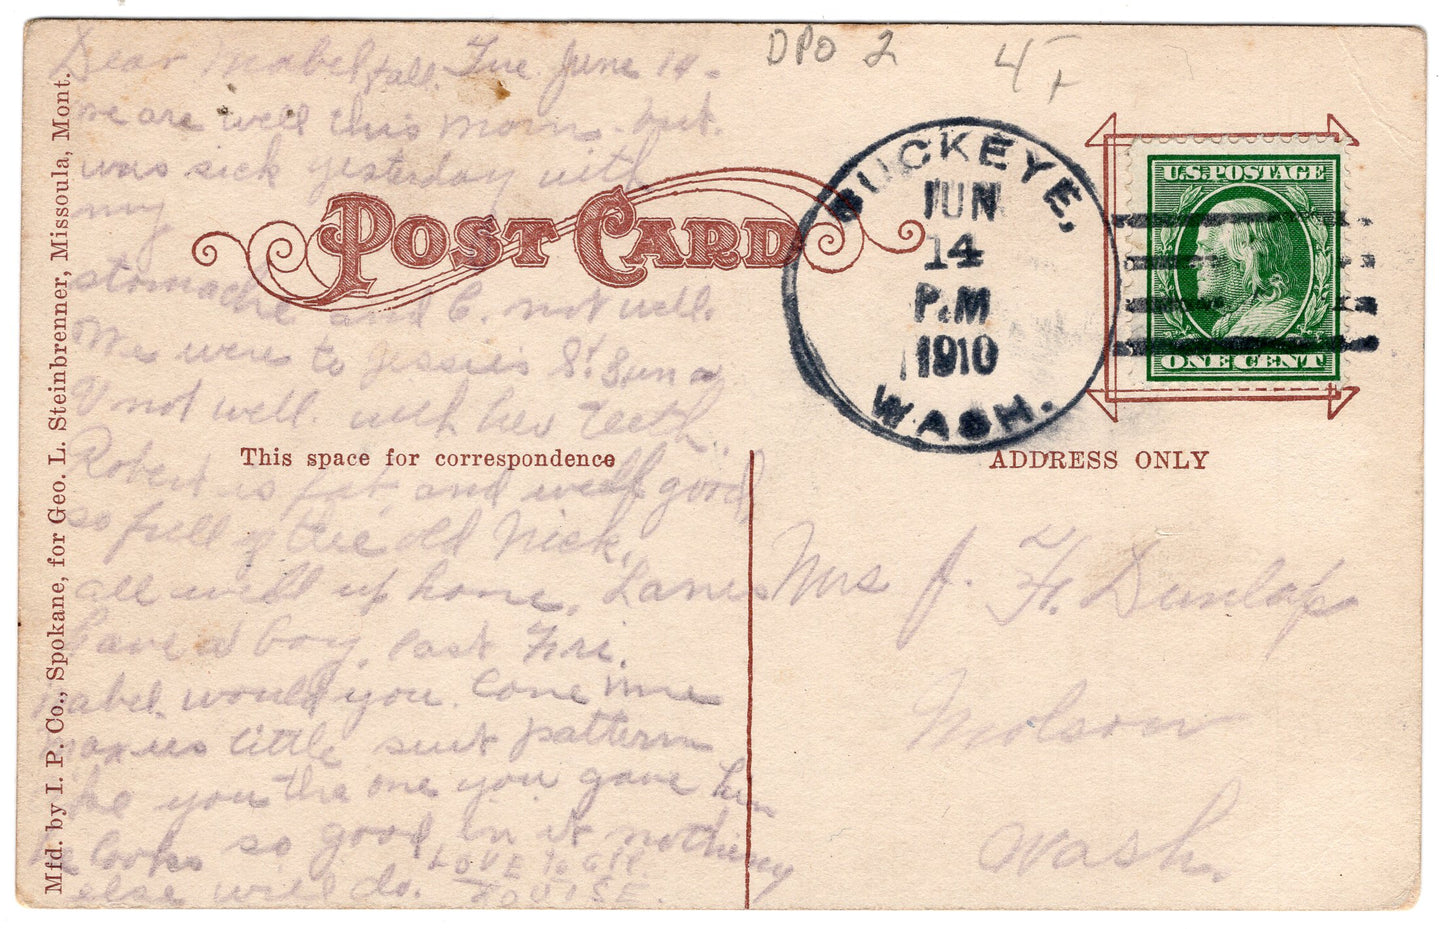 DPO 2 4
Dear Mabel & all. Tue June 14.
we are well this morn. but
was sick yesterday with
my
stomache and C. not well.
We were to Jessies St Sun
V not well. with her teeth.
Robert is fat and well good
so full of the old Nick.
all well up home. Lanes
have a boy. last Fri.
Mabel would you lone me
little suit pattern
like you the one you gave him
he looks so good in it nothing
else will do. LOVE TO ALL.
LOUISE.
POST CARD
This space for correspondence
Mfd. by I. P. Co., Spokane, for Geo. L. Steinbrenner, Missoula, Mont.
BUCKEYE,
JUN
14
P.M
1910
WASH.
U.S. POSTAGE
ONE CENT
ADDRESS ONLY
Mrs J. H. Dunlap
Molson
Wash.